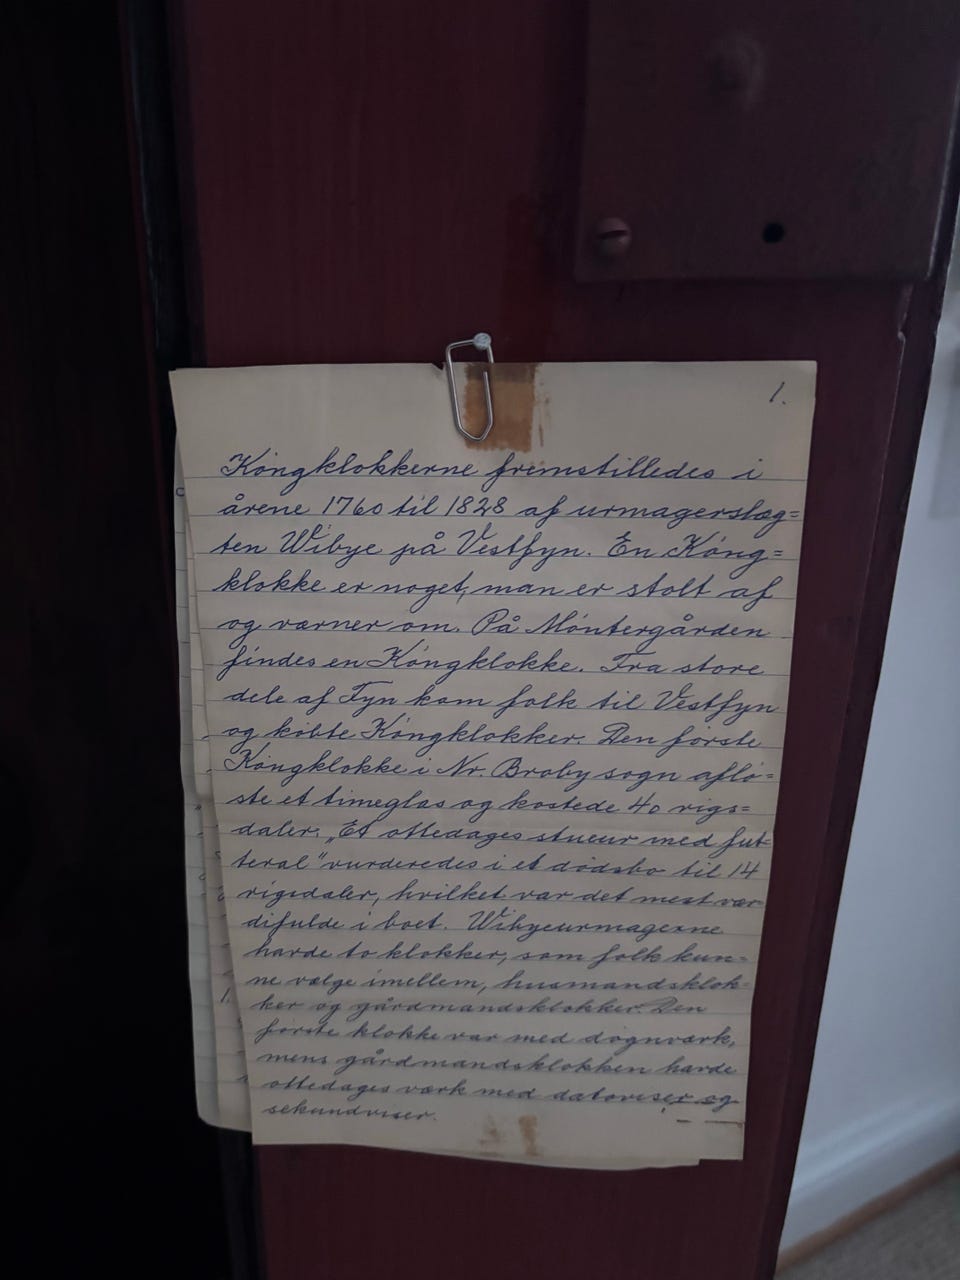 1.
Köngklokkerne fremstilledes i
årene 1760 til 1828 af urmagerslæg=
ten Wibye på Vestfyn. En Köng=
klokke er noget, man er stolt af
og værner om. På Möntergården
findes en Köngklokke. Fra store
dele af Fyn kom folk til Vestfyn
og köbte Köngklokker. Den förste
Köngklokke i Nr. Broby sogn aflö=
ste et timeglas og kostede 40 rigs=
daler. „Et ottedages stueur med fut=
teral" vurderedes i et dödsbo til 14
rigsdaler, hvilket var det mest vær=
difulde i boet. Wibyeurmagerne
havde to klokker, som folk kun=
ne vælge imellem, husmandsklok=
ker og gårdmandsklokker. Den
förste klokke var med dögnværk,
mens gårdmandsklokken havde
ottedages værk med datoviser og
sekundviser.